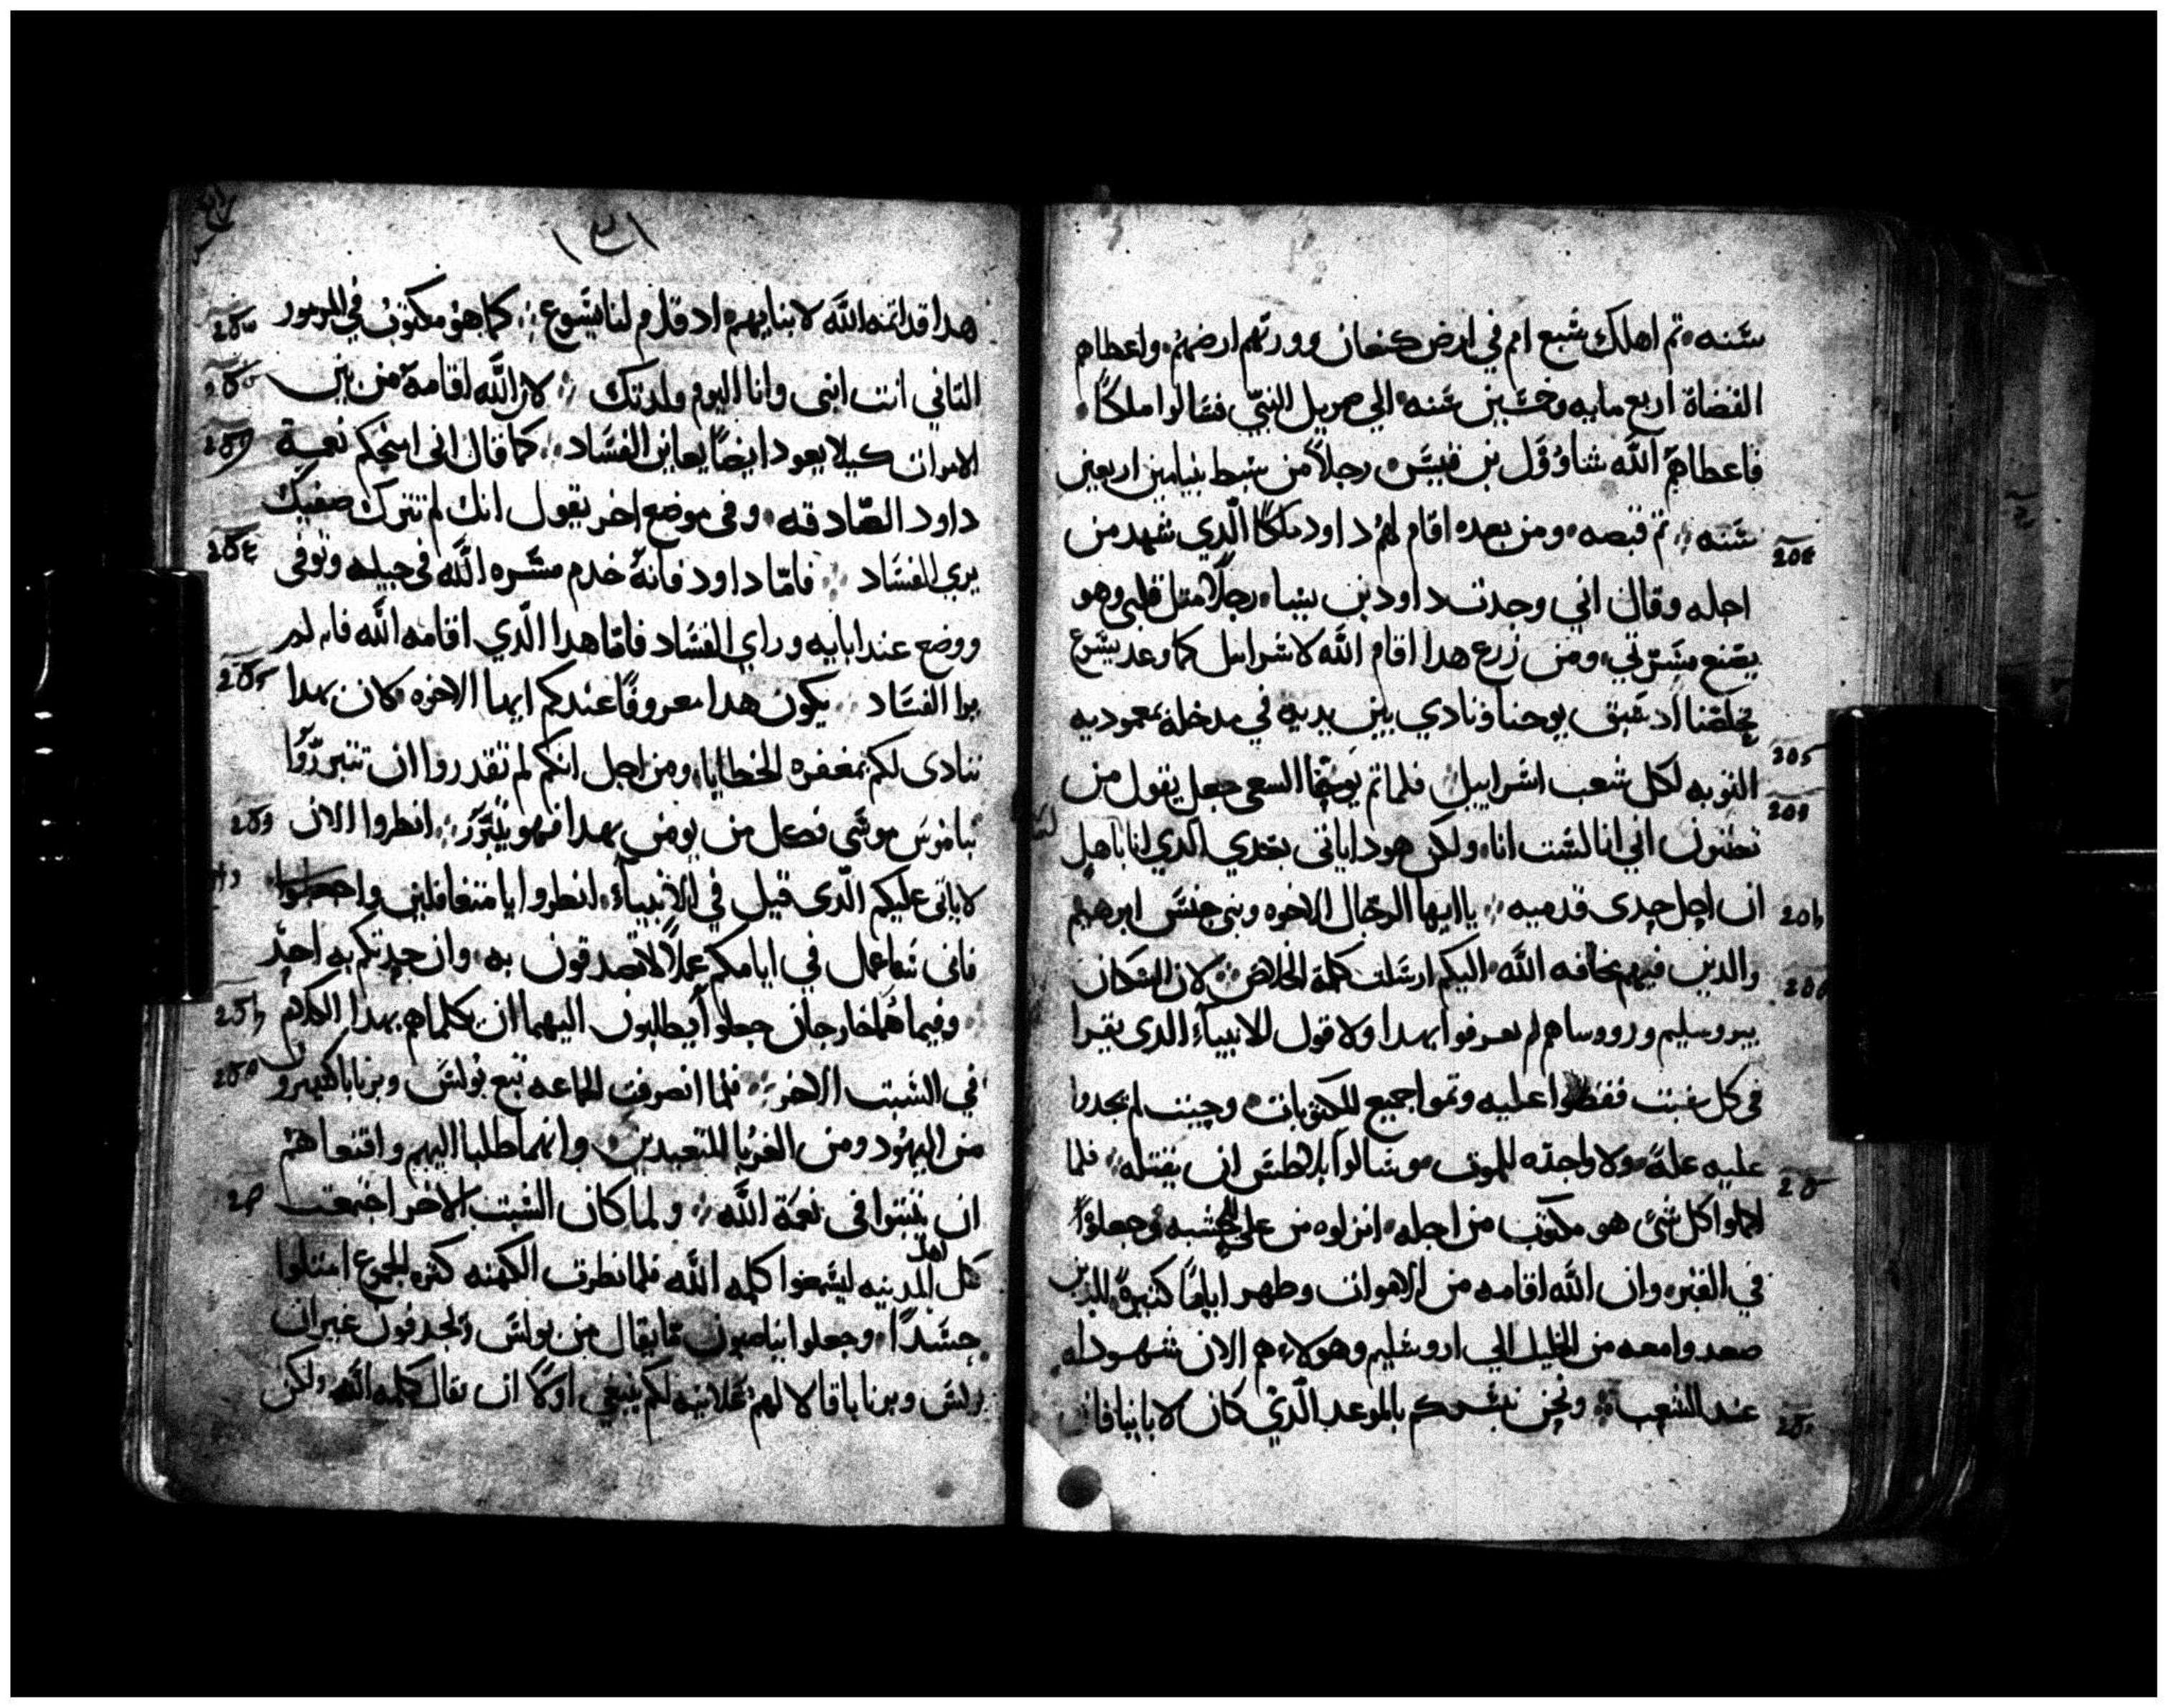 سنه ثم اهلك سبع امم في ارض كنعان وورثهم ارضهم واعطاهم
القضاة اربع مايه وخمسين سنه الي صمويل النبي فسالوا ملكًا
فاعطاهم الله شاوول بن قيس رجلاً من سبط بنيامين اربعين
سنه تم قبضه ومن بعده اقام لهم داود ملكًا الّدي شهد من
اجله وقال اني وجدت داود بن يسا رجلًا متل قلبي وهو
يصنع مسرتي ومن زرع هدا اقام الله لاسراييل كما وعد يسوع
مخلصنا اد سبق يوحنا ونادي بين يديه في مدخله بمعموديه
التوبه لكل شعب اسراييل فلما تم يوحنا السعي جعل يقول من
تظنون اني انا لست انا ولكن هودا ياتي بعدي الدي انا باهل
ان احل حدي قدميه يا ايها الرجال الاخوه وبني جنس ابرهيم
والدين فيهم مخافه الله اليكم ارسلت كلمة الخلاص لان السكان
بيروسليم ورووساهم لم يعرفوا بهدا ولا قول الانبياء الدي يقرا
في كل سبت فقضوا عليه وتموا جميع المكتوبات وحيت لم يجدوا
عليه علة ولا واحده للموت سالوا بلاطس ان يقتله فلما
اكملوا كل شي هو مكتوب من اجله انزلوه من علي الخشبه وجعلوا
في القبر وان الله اقامه من الاموات وظهر ايامًا كتيرة للدين
صعدوا معه من الجليل الي اروشليم وهولاء هم الان شهود له
عند الشعب ونحن نبشركم بالموعد الّدي كان لابايناء فان
١٣١
هدا قد اتمه الله لابنايهم اد قام لنا يسوع كما هو مكتوب في المزمور
التاني انت ابني وانا اليوم ولدتك لان الله اقامه من بين
الاموات كيلا يعود ايضًا يعاين الفساد كما قال اني امنحكم نعمة
داود الصادقه وفي موضع اخر يقول انك لم تترك صفيك
يري الفساد فامّا داود فانهُ خدم مسره الله في جيله وتوفي
ووضع عند ابايه وراي الفساد فامّا هدا الّدي اقامه الله فانه لم
يرا الفساد يكون هدا معروفًا عندكم ايها الاخوه كان بهدا
ننادي لكم بمغفره الخطايا ومن اجل انكم لم تقدروا ان تتبررُوا
بناموس موسى فكل من يومن بهدا فهو يتبرر انظروا الان
لا ياتي عليكم الّدي قيل في الانبياء انظروا يا متغافلين واجهلوا
فاني ساعمل في ايامكم عملًا لا تصدقون به وان حدتكم به احدٌ
وفيما هما خارجان جعلوا يطلبون اليهما ان يكلماهم بهدا الكلام
في السبت الاخر فلما انصرفت الجماعه تبع بولس وبرنابا كتيرون
من اليهُود ومن الغربا المتعبدين وانهما طلبا اليهم واقنعاهم
ان يتبتوا في نعمة الله ولما كان السبت الاخر اجتمعت
كل اهل المدينه ليسمعوا كلمه الله فلما نظرت الكهنه كتره الجموع امتلوا
حسدًا وجعلوا يناصبون ما يقال من بولس ويجدفون غير ان
بولس وبرنابا قالا لهم علانيه لكم ينبغي اولًا ان تقال كلمه الله ولكن